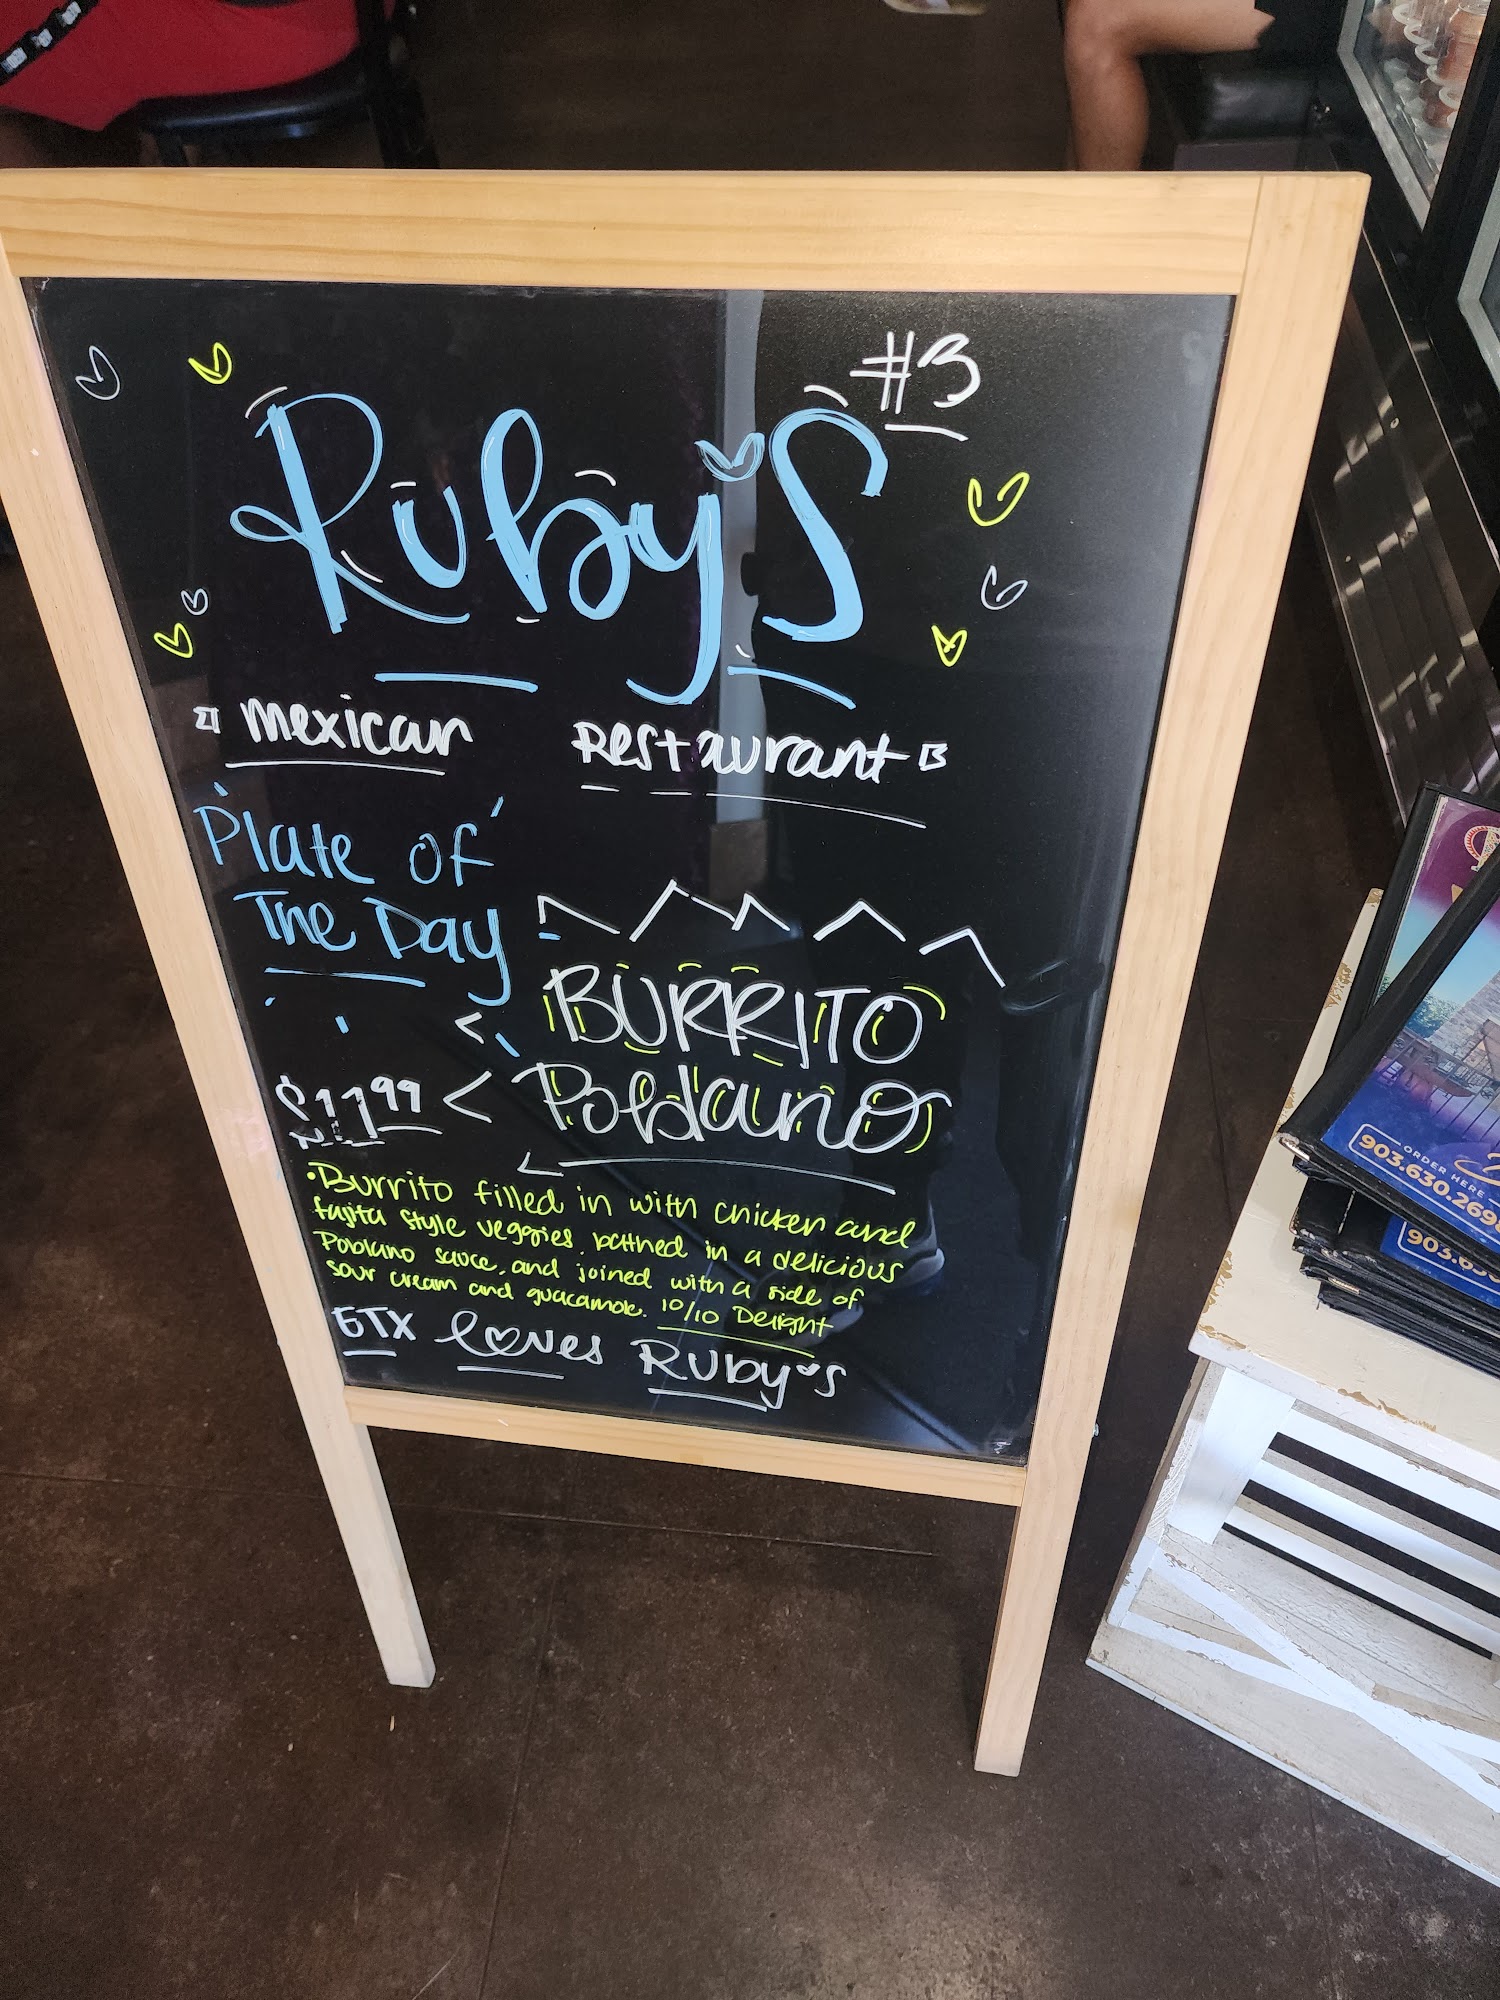 #3
Ruby's
Mexican Restaurant
Plate of
The Day
BURRITO
Poblano
$11.99
•Burrito filled in with chicken and
fajita style veggies, bathed in a delicious
Poblano sauce, and joined with a side of
sour cream and guacamole. 10/10 Delight
ETX loves Ruby's
ORDER HERE
903.630.269
903.630